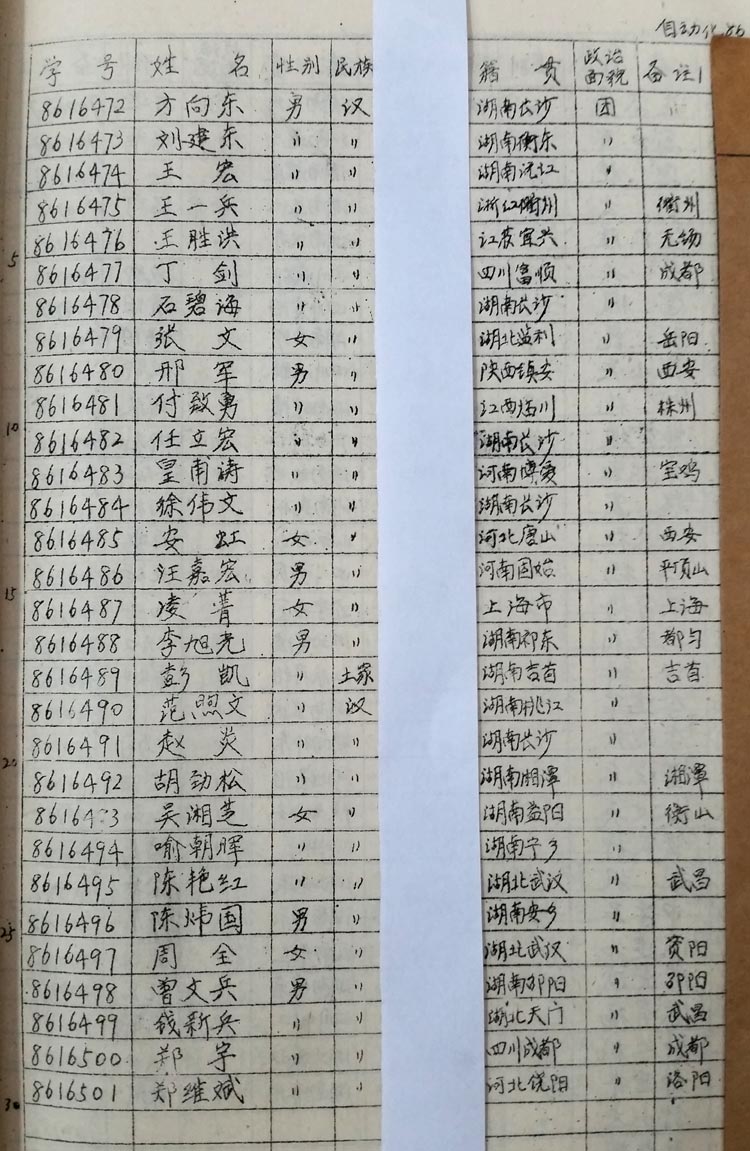 自动化86
学号 姓名 性别 民族 籍贯 政治面貌 备注
8616472 方向东 男 汉 湖南长沙 团 〃
8616473 刘建东 〃 〃 湖南衡东 〃
8616474 王宏 〃 〃 湖南沅江 〃
8616475 王一兵 〃 〃 浙江衢州 〃 衢州
5 8616476 王胜洪 〃 〃 江苏宜兴 〃 无锡
8616477 丁剑 〃 〃 四川富顺 〃 成都
8616478 石碧海 〃 〃 湖南长沙 〃
8616479 张文 女 〃 湖北监利 〃 岳阳
8616480 邢军 男 〃 陕西镇安 〃 西安
10 8616481 付致勇 〃 〃 江西临川 〃 株州
8616482 任立宏 〃 〃 湖南长沙 〃
8616483 皇甫涛 〃 〃 河南博爱 〃 宝鸡
8616484 徐伟文 〃 〃 湖南长沙 〃
8616485 安虹 女 〃 河北唐山 〃 西安
15 8616486 汪嘉宏 男 〃 河南固始 〃 平顶山
8616487 凌菁 女 〃 上海市 〃 上海
8616488 李旭光 男 〃 湖南祁东 〃 都匀
8616489 彭凯 〃 土家 湖南吉首 〃 吉首
8616490 范照文 〃 汉 湖南桃江 〃
20 8616491 赵炎 〃 〃 湖南长沙 〃
8616492 胡劲松 〃 〃 湖南湘潭 〃 湘潭
8616493 吴湘芝 女 〃 湖南益阳 〃 衡山
8616494 喻朝晖 〃 〃 湖南宁乡 〃
8616495 陈艳红 〃 〃 湖北武汉 〃 武昌
25 8616496 陈炜国 男 〃 湖南安乡 〃
8616497 周全 女 〃 湖北武汉 〃 资阳
8616498 曾文兵 男 〃 湖南邵阳 〃 邵阳
8616499 钱新兵 〃 〃 湖北天门 〃 武昌
8616500 郑宇 〃 〃 四川成都 〃 成都
30 8616501 郑继斌 〃 〃 河北饶阳 〃 洛阳